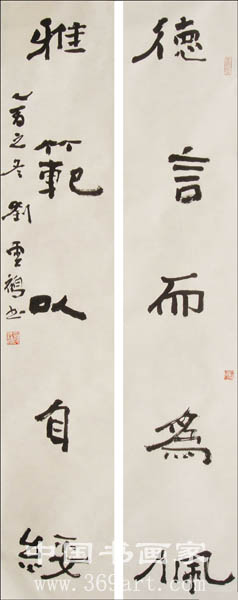 德言而為佩
雅範以自綏
乙酉之冬劉雲鶴书
中国书画家
www.369art.com